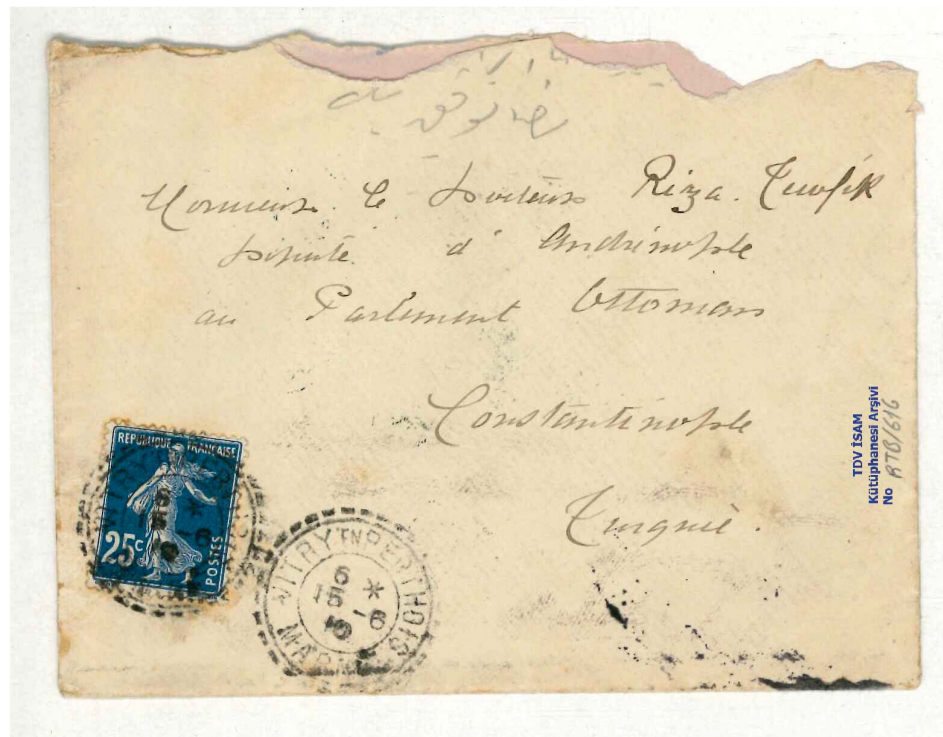 Monsieur le Docteur Riza Tewfik
Député d'Andrinople
au Parlement Ottoman
Constantinople
Turquie.
RÉPUBLIQUE FRANÇAISE
25c
POSTES
VITRY EN PERTHOIS
MARNE
TDV İSAM
Kütüphanesi Arşivi
No RTB/616